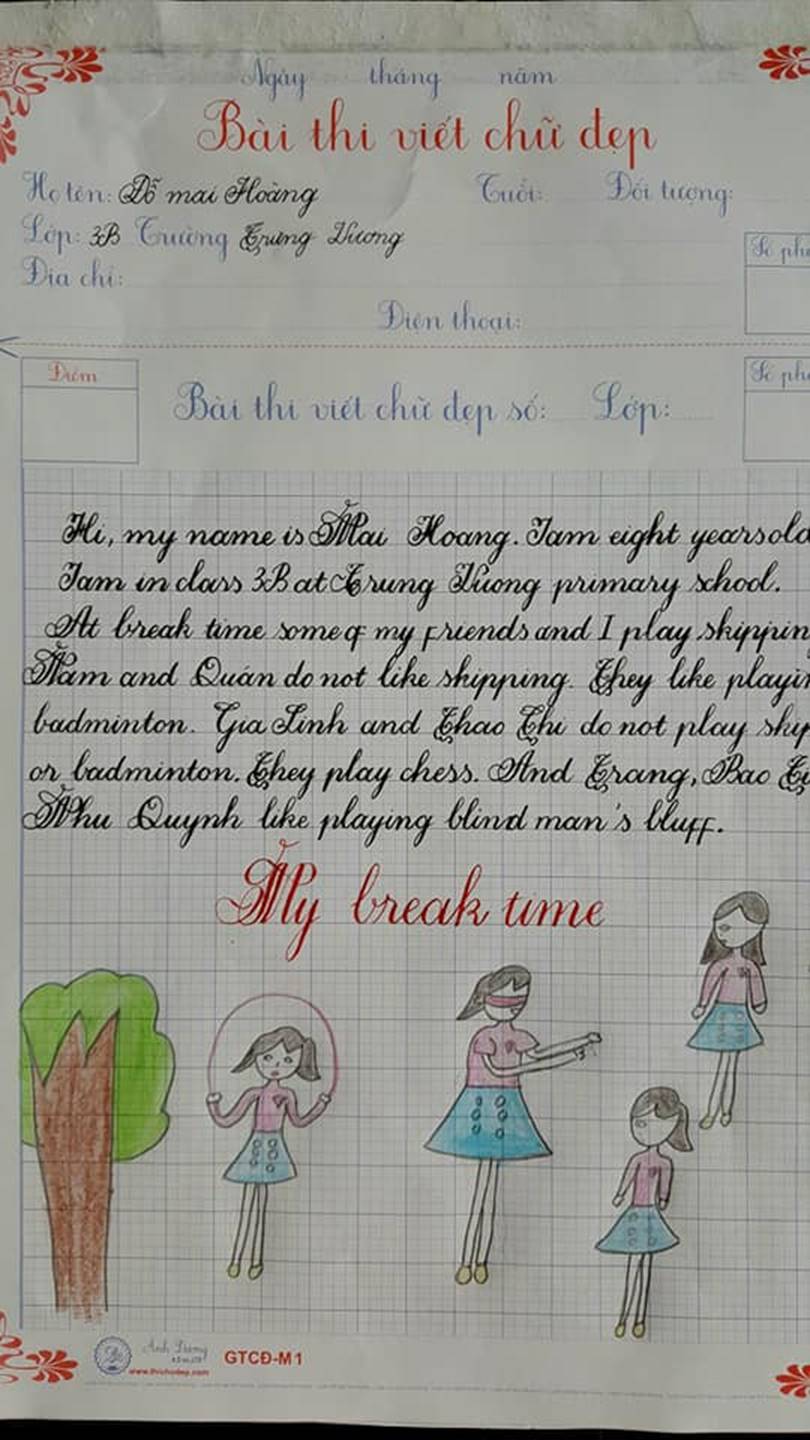 Ngày tháng năm
Bài thi viết chữ đẹp
Họ tên: Đỗ mai Hoàng Tuổi: Đối tượng:
Lớp: 3B Trường Trưng Vương
Địa chỉ:
Số ph
Điện thoại:
Điểm
Số ph
Bài thi viết chữ đẹp số: Lớp:
Hi, my name is Mai Hoang. I am eight years old
I am in class 3B at Trung Vuong primary school.
At break time some of my friends and I play skippin
Nam and Quân do not like skipping. They like playi
badminton. Gia Linh and Thao Chi do not play skip
or badminton. They play chess. And Trang, Bao
Nhu Quynh like playing blind man's bluff.
My break time
Ánh Dương
www.thichudep.com
GTCĐ-M1